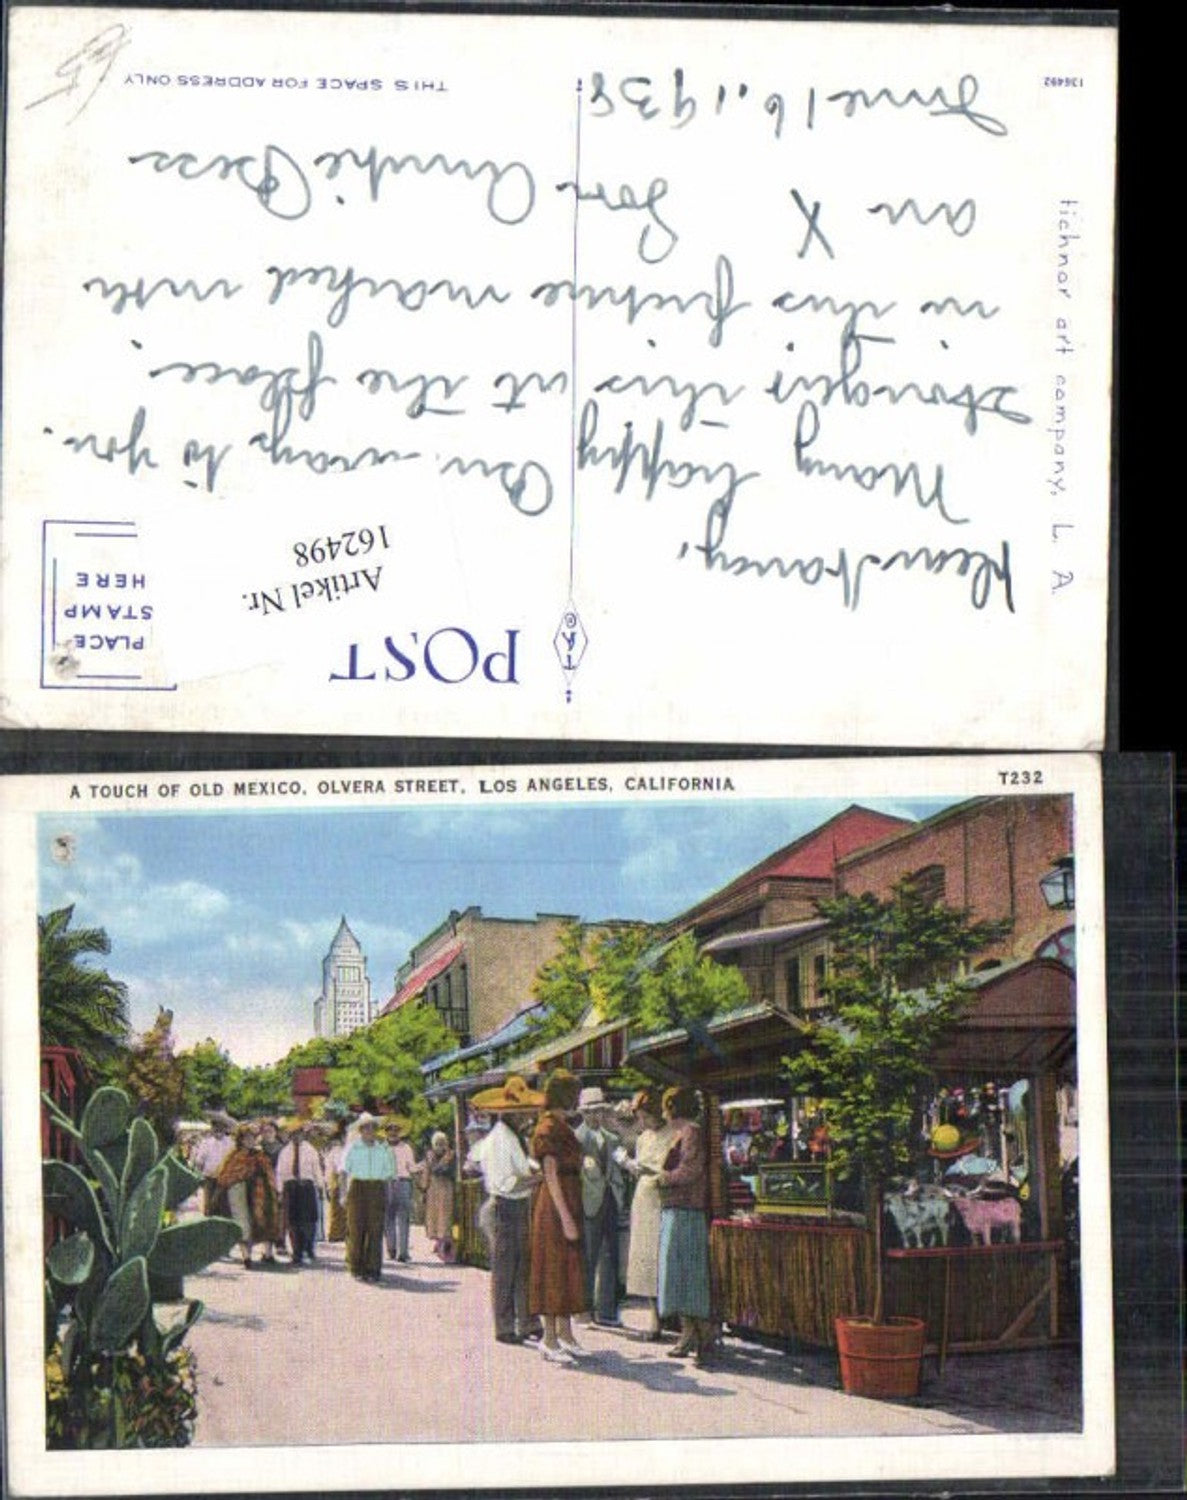 POST
PLACE
STAMP
HERE
Artikel Nr.
162498
tichnor art company, L. A.
Dear Nancy,
Many happy way to you.
this at the place
in this picture marked with
an X Love Auntie Bess
June 16, 1938
THIS SPACE FOR ADDRESS ONLY
136492
A TOUCH OF OLD MEXICO, OLVERA STREET, LOS ANGELES, CALIFORNIA
T232